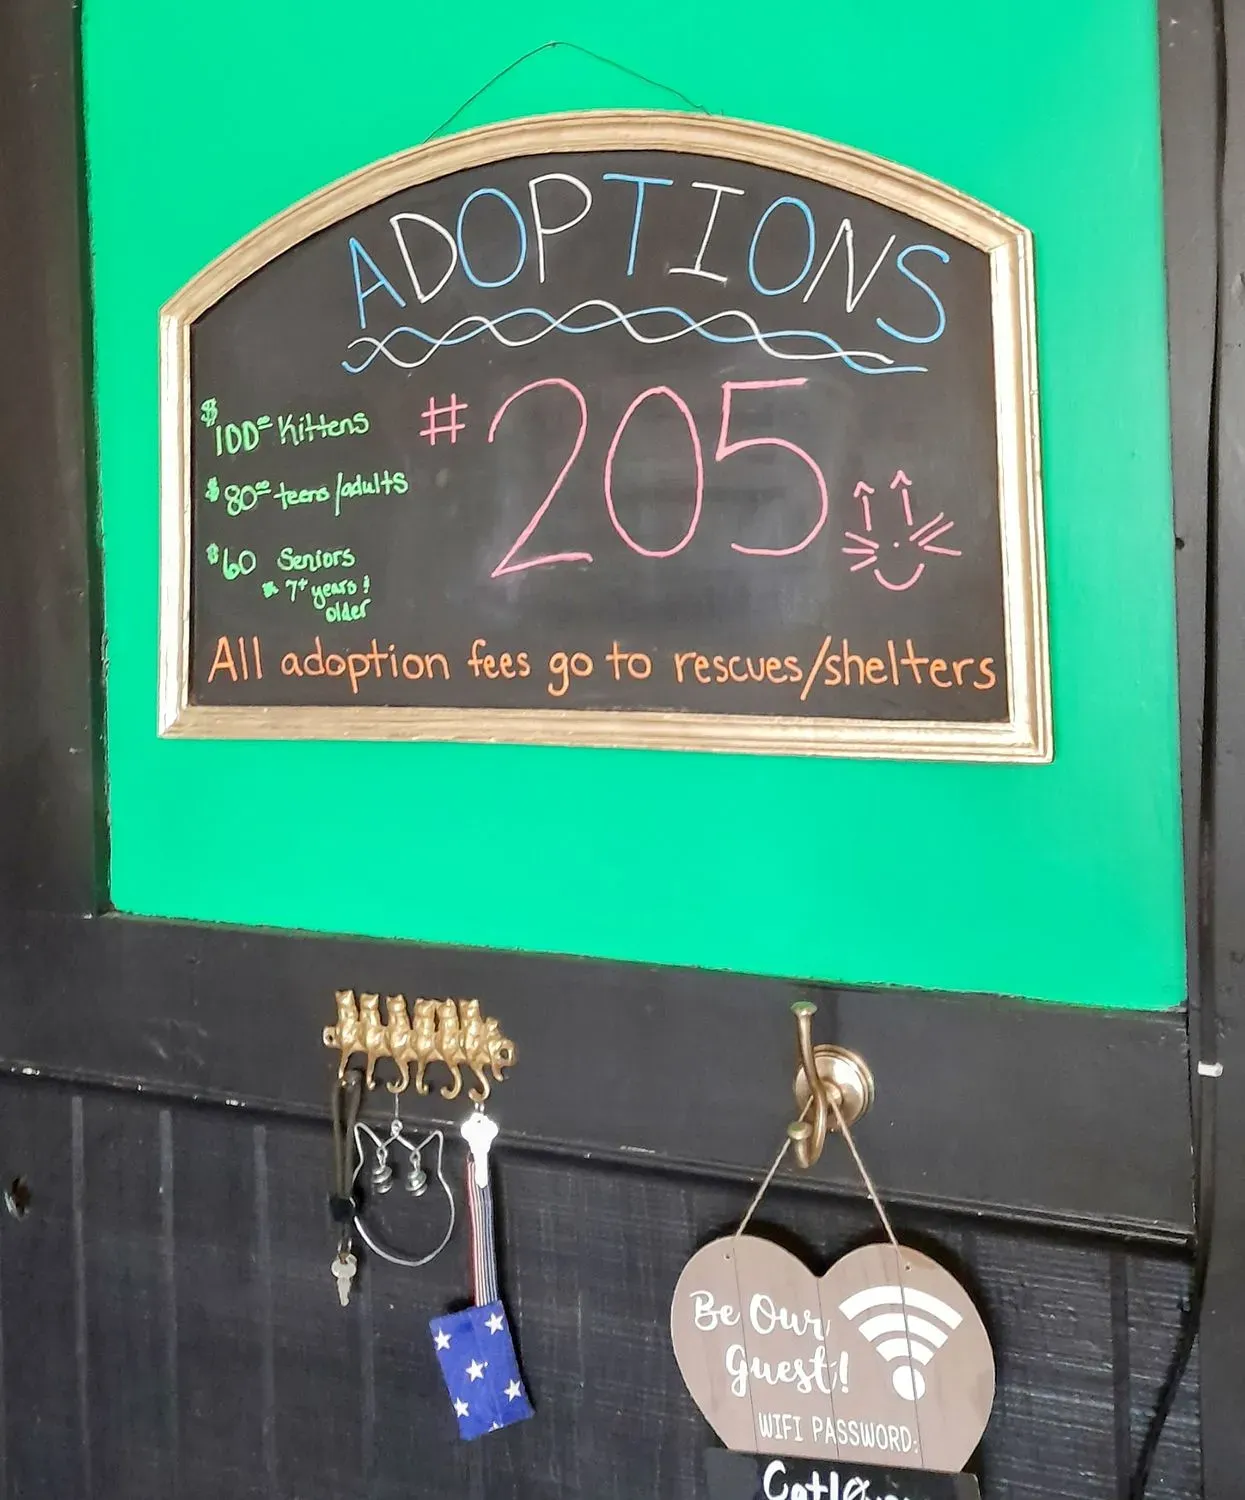 ADOPTIONS
# 205
$100.00 Kittens
$80.00 teens/adults
$60 Seniors
* 7+ years &
older
All adoption fees go to rescues/shelters
Be Our
Guest!
WIFI PASSWORD: